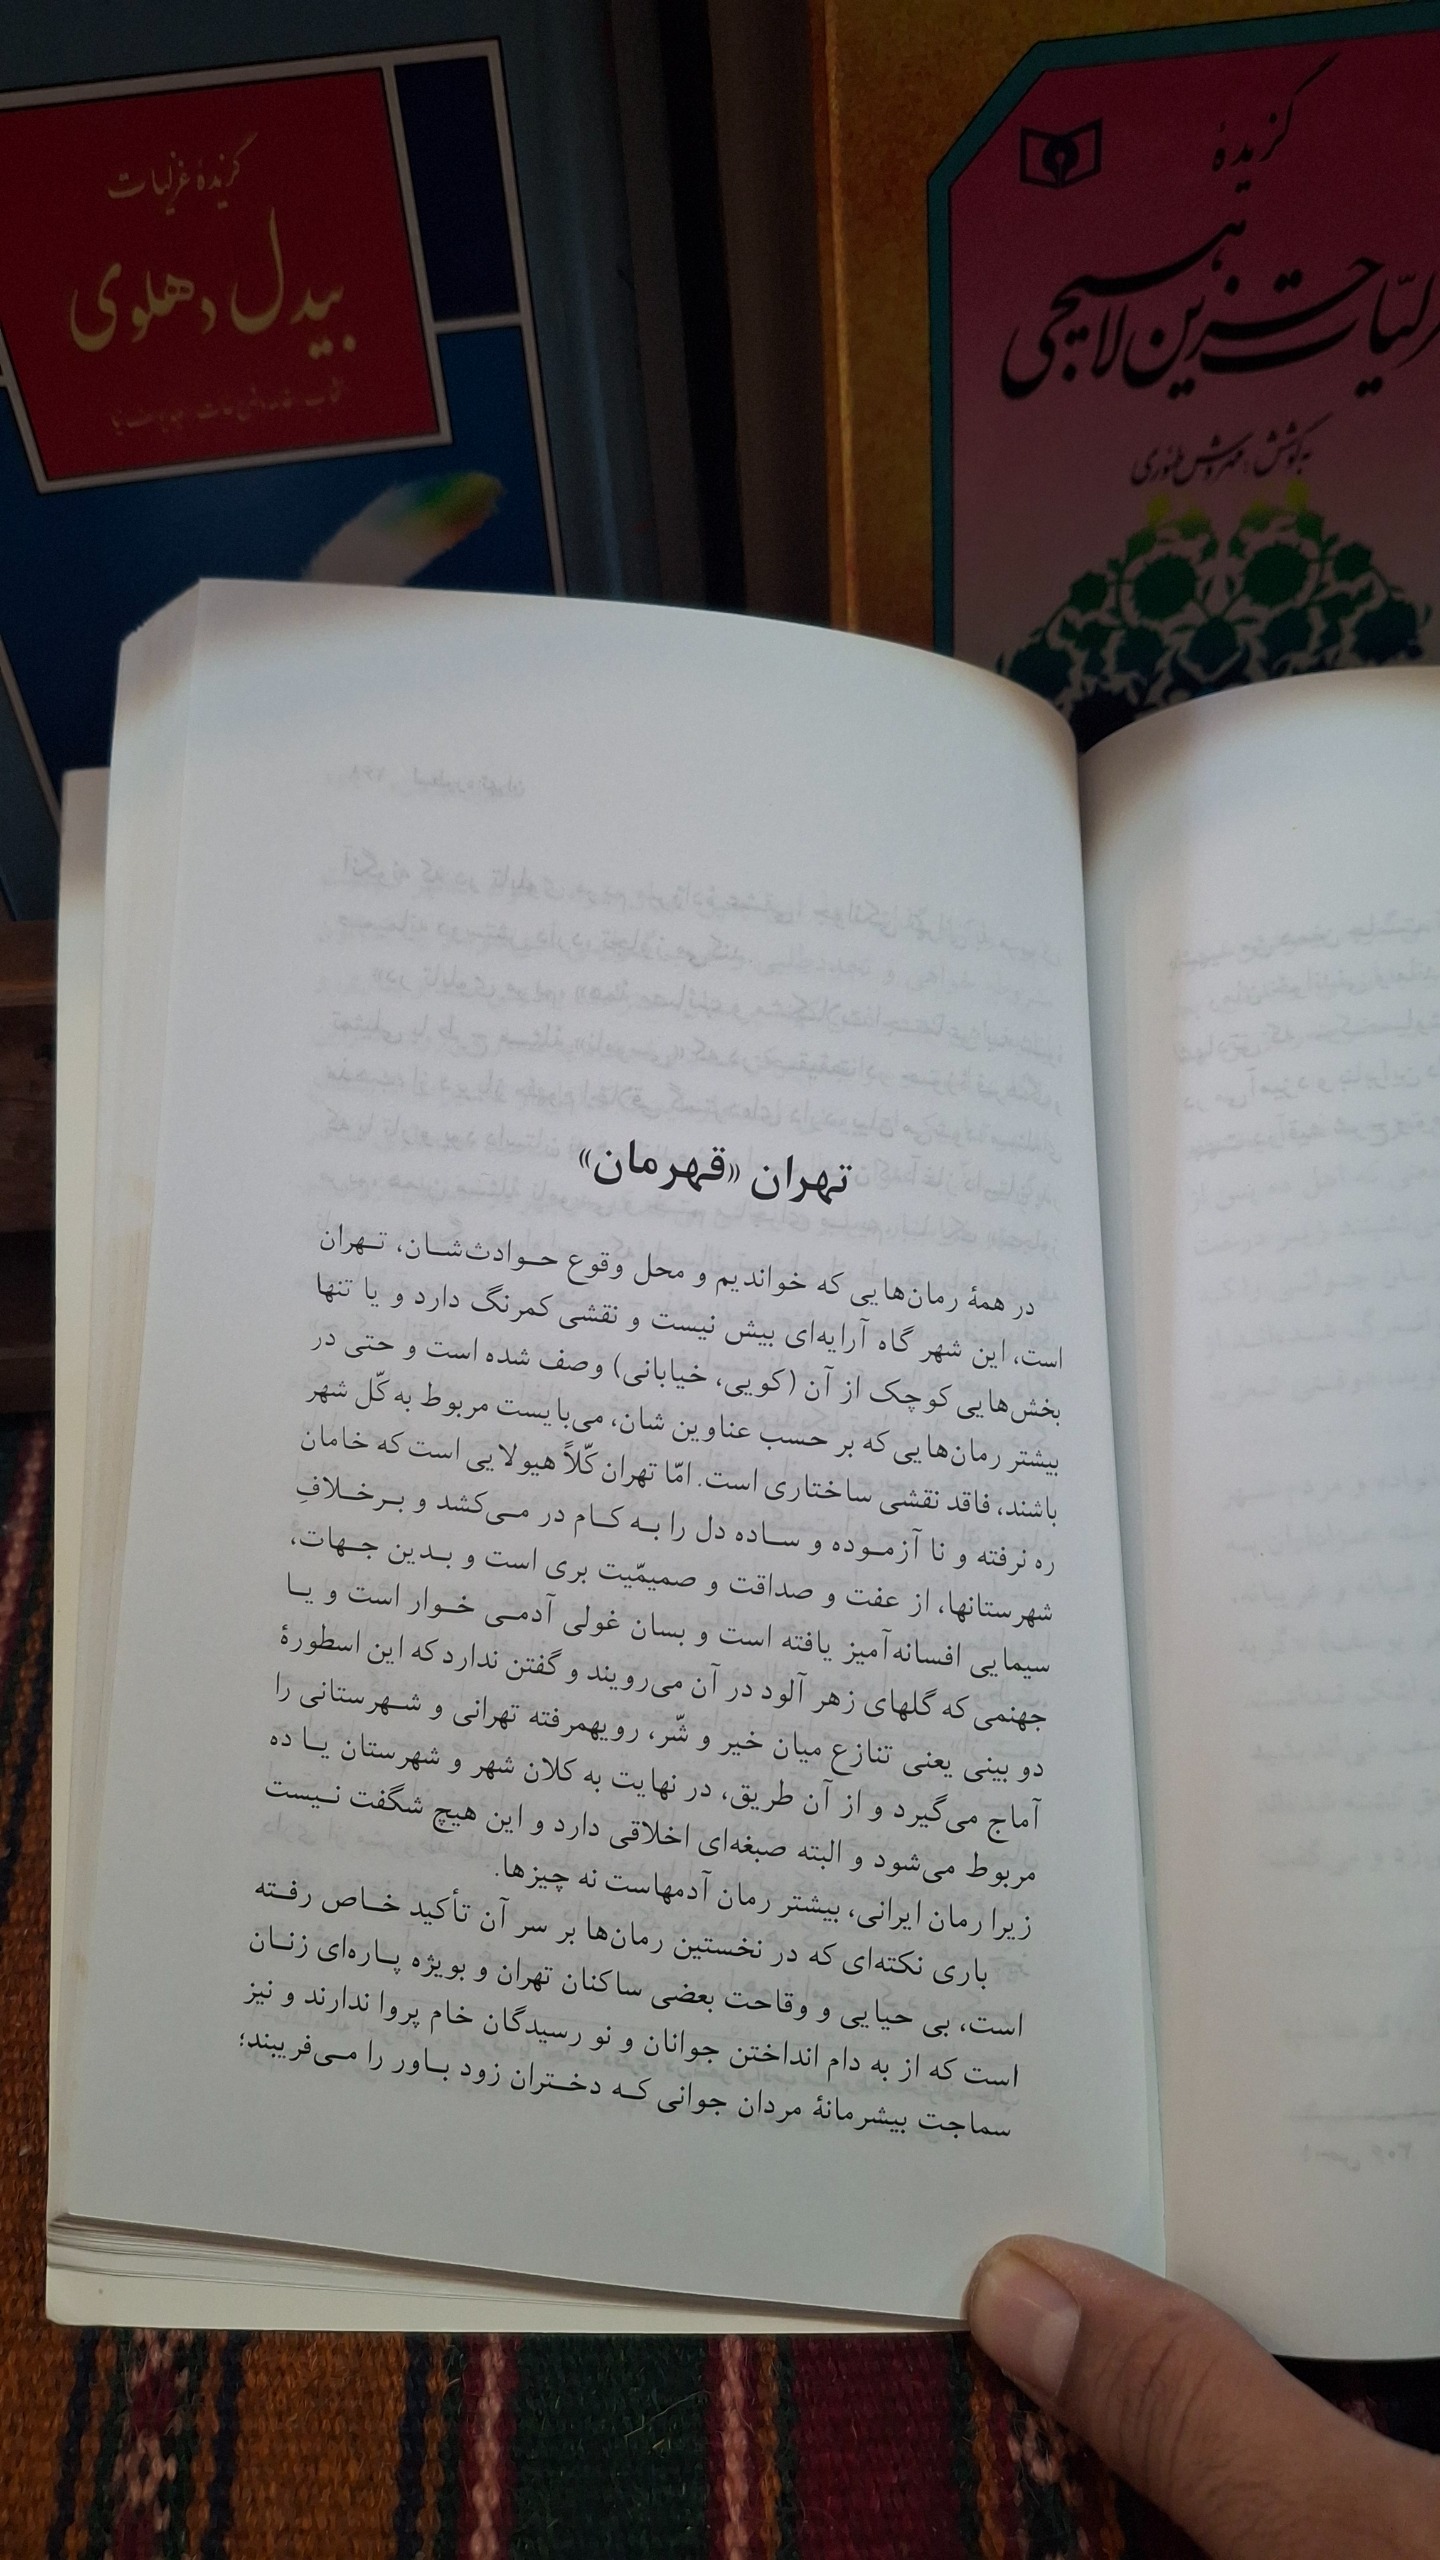 گزیدهٔ غزلیات
بیدل دهلوی
گزیدهٔ
غزلیات حزین لاهیجی
به کوشش: مهروش طهوری
تهران «قهرمان»
در همهٔ رمان‌هایی که خواندیم و محل وقوع حـوادث‌شـان، تـهران
است، این شهر گاه آرایه‌ای بیش نیست و نقشی کمرنگ دارد و یا تنها
بخش‌هایی کوچک از آن (کویی، خیابانی) وصف شده است و حتی در
بیشتر رمان‌هایی که بر حسب عناوین شان، می‌بایست مربوط به کلّ شهر
باشند، فاقد نقشی ساختاری است. امّا تهران کلّاً هیولایی است که خامان
ره نرفته و نا آزمـوده و سـاده دل را بـه کـام در مـی‌کشد و بـرخـلافِ
شهرستانها، از عفت و صداقت و صمیمّیت بری است و بـدین جـهات،
سیمایی افسانه‌آمیز یافته است و بسان غولی آدمـی خـوار است و یـا
جهنمی که گلهای زهر آلود در آن می‌رویند و گفتن ندارد که این اسطورهٔ
دو بینی یعنی تنازع میان خیر و شّر، رویهمرفته تهرانی و شـهرستانی را
آماج می‌گیرد و از آن طریق، در نهایت به کلان شهر و شهرستان یـا ده
مربوط می‌شود و البته صبغه‌ای اخلاقی دارد و این هیچ شگفت نـیست
زیرا رمان ایرانی، بیشتر رمان آدمهاست نه چیزها.
باری نکته‌ای که در نخستین رمان‌ها بر سر آن تأکید خـاص رفـته
است، بی حیایی و وقاحت بعضی ساکنان تهران و بویژه پـاره‌ای زنـان
است که از به دام انداختن جوانان و نو رسیدگان خام پروا ندارند و نیز
سماجت بیشرمانهٔ مردان جوانی کـه دخـتران زود بـاور را مـی‌فریبند؛